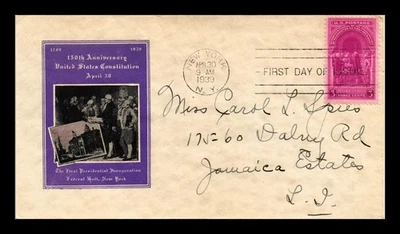 1789 1939
150th Anniversary
United States Constitution
April 30
The First Presidential Inauguration
Federal Hall, New York
NEW YORK
APR 30
9 AM
1939
N.Y.
FIRST DAY OF ISSUE
U.S. POSTAGE
3 3
Miss Carol L. Spies
175-60 Dalny Rd
Jamaica Estates
L. I.